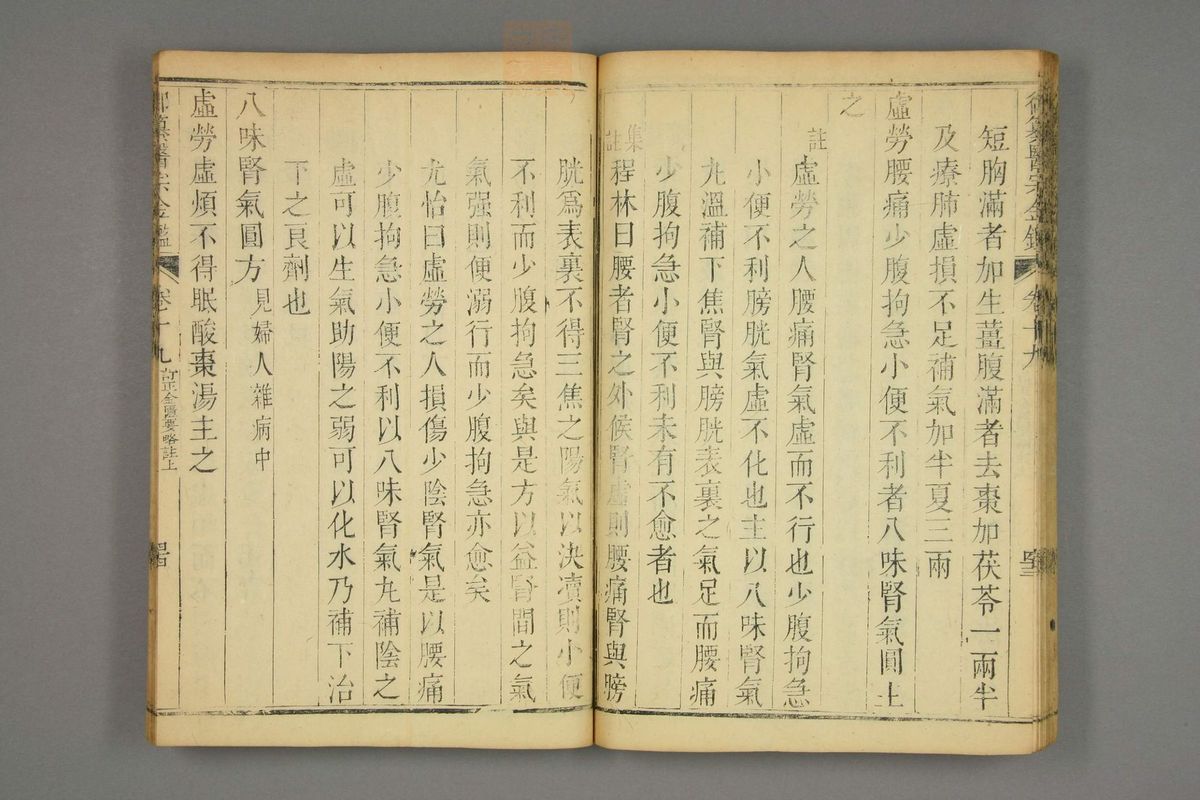 御纂醫宗金鑑 卷十九
短胸滿者加生薑腹滿者去棗加茯苓一兩半
及療肺虛損不足補氣加半夏三兩
虛勞腰痛少腹拘急小便不利者八味腎氣圓主
之
註 虛勞之人腰痛腎氣虛而不行也少腹拘急
小便不利膀胱氣虛不化也主以八味腎氣
丸溫補下焦腎與膀胱表裏之氣足而腰痛
少腹拘急小便不利未有不愈者也
集註 程林曰腰者腎之外候腎虛則腰痛腎與膀
胱為表裏不得三焦之陽氣以決瀆則小便
不利而少腹拘急矣與是方以益腎間之氣
氣强則便溺行而少腹拘急亦愈矣
尤怡曰虛勞之人損傷少陰腎氣是以腰痛
少腹拘急小便不利以八味腎氣丸補陰之
虛可以生氣助陽之弱可以化水乃補下治
下之良劑也
八味腎氣圓方 見婦人雜病中
虛勞虛煩不得眠酸棗湯主之
御纂醫宗金鑑 卷十九 訂正金匱要略註上